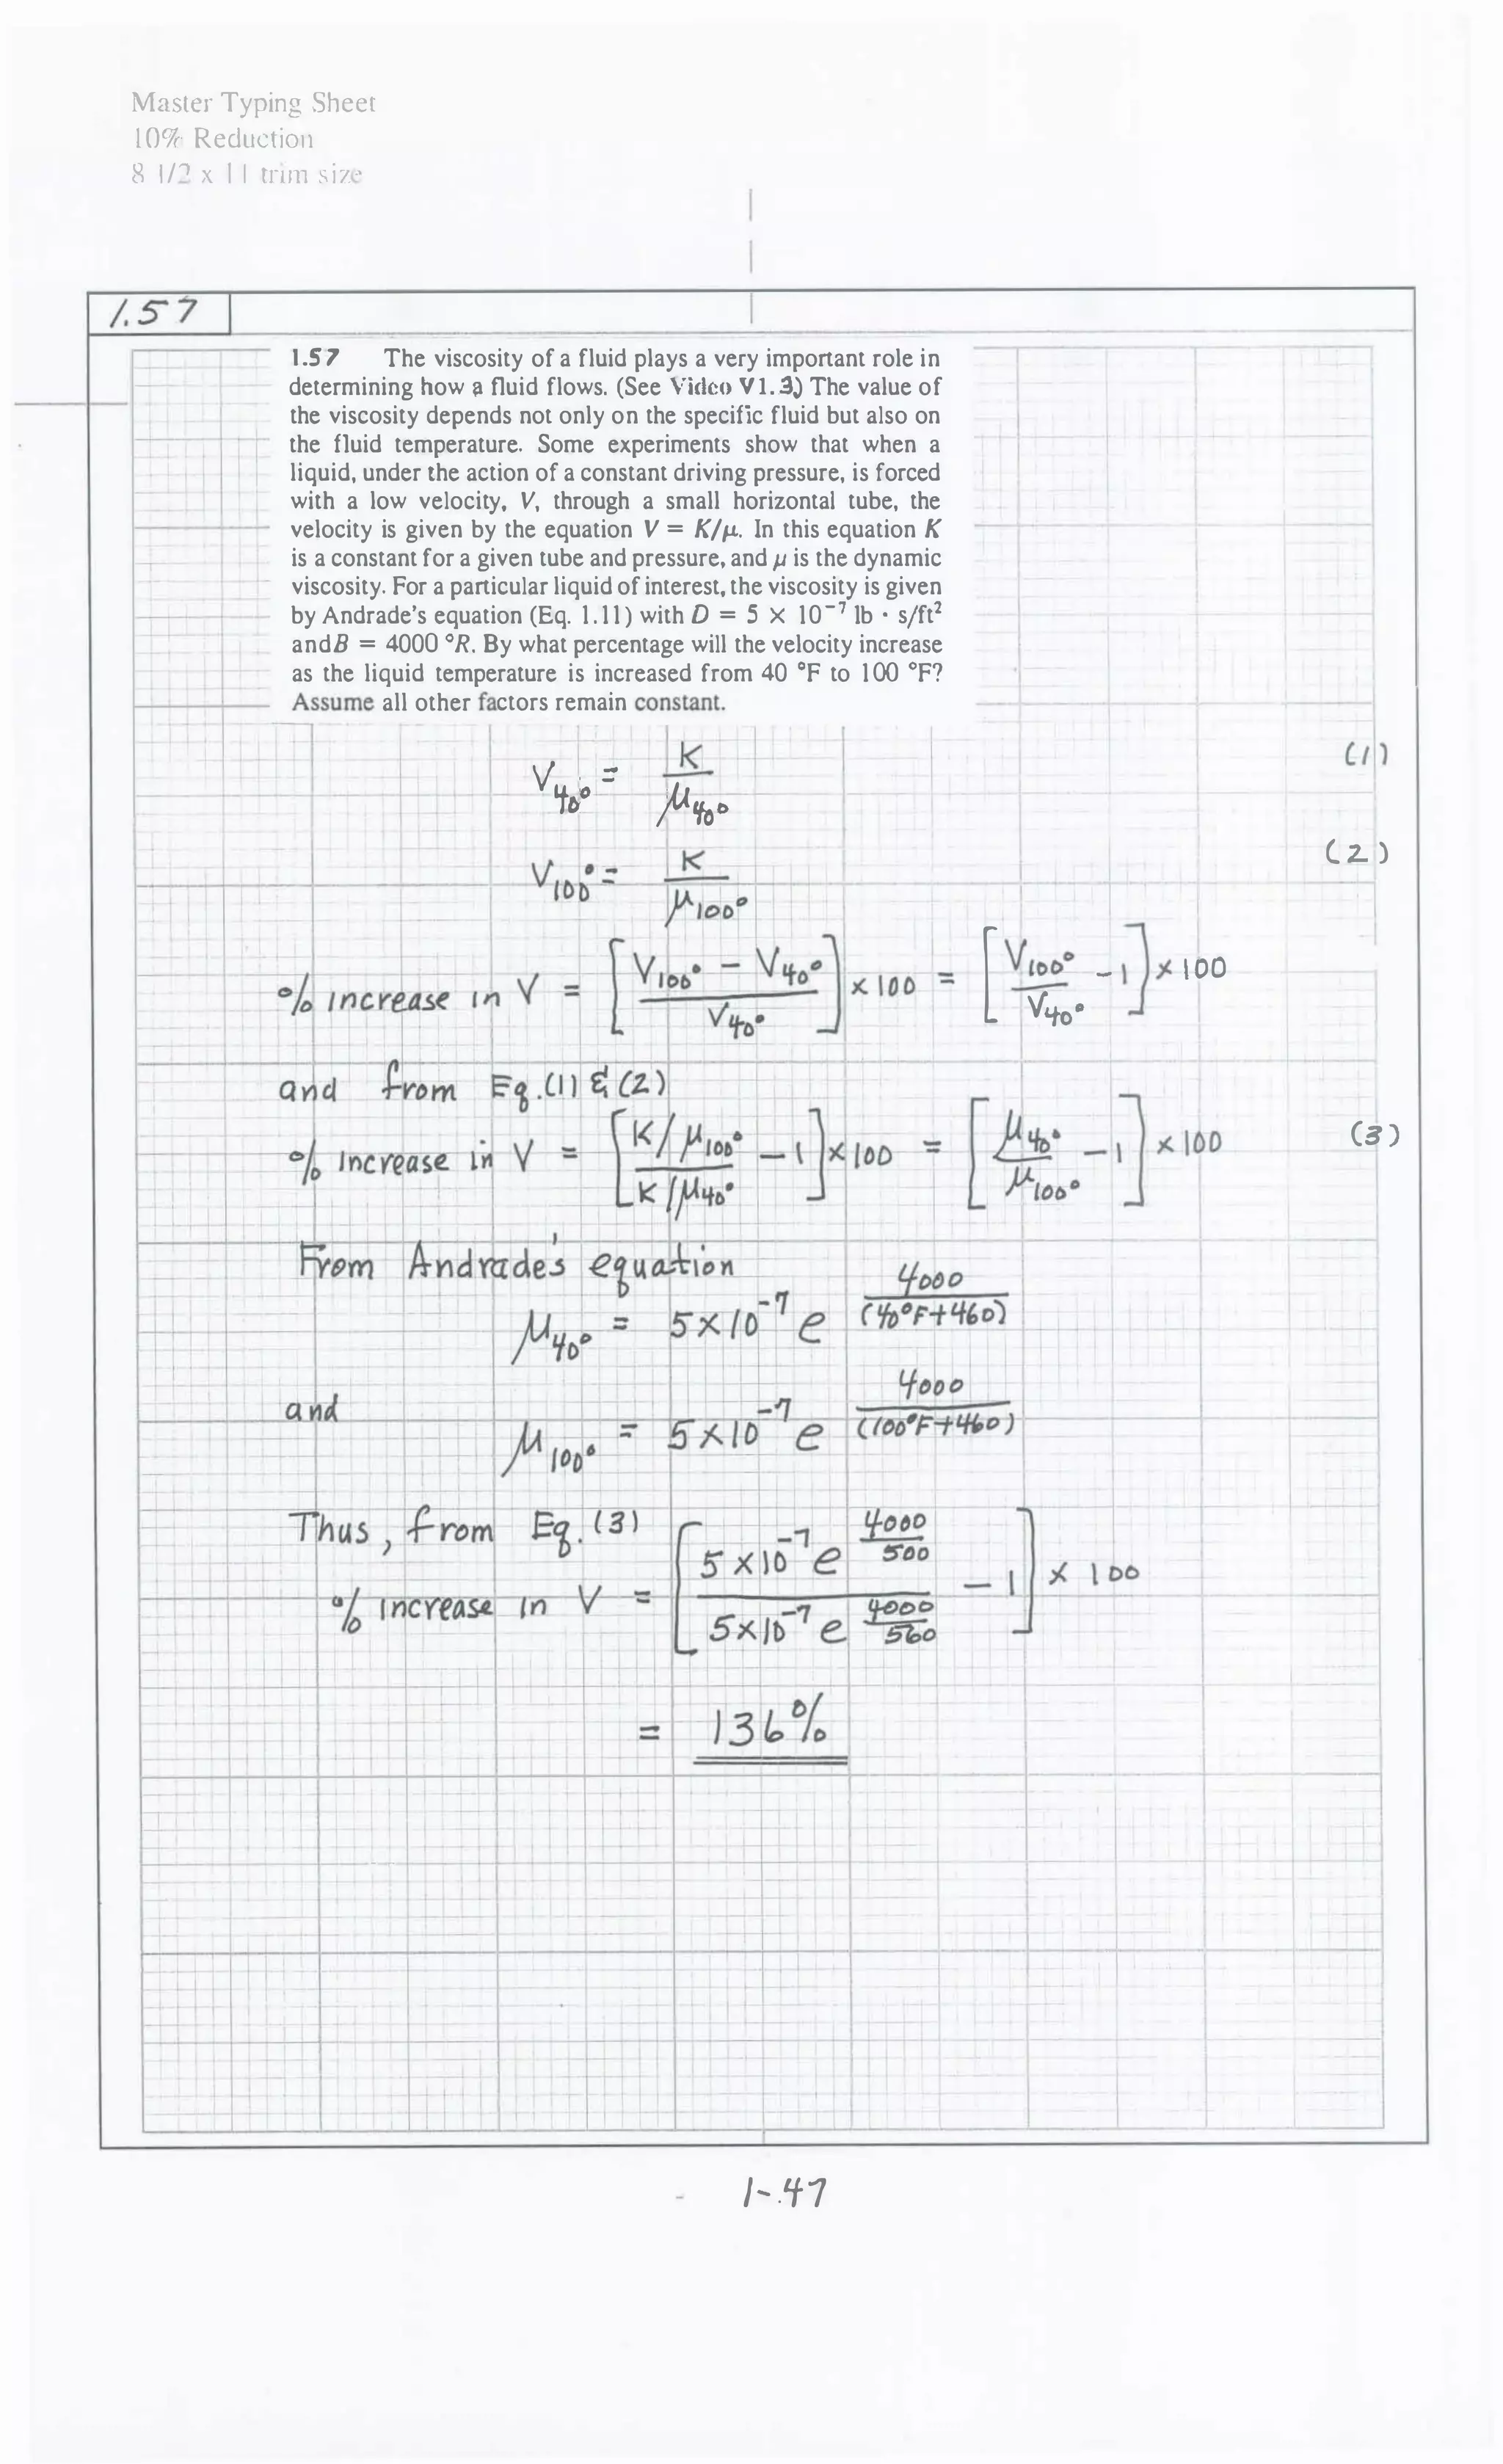 Master Typing Sheet
10% Reduction
8 1/2 x 11 trim size
1.57
1.57 The viscosity of a fluid plays a very important role in
determining how a fluid flows. (See Video V1.3) The value of
the viscosity depends not only on the specific fluid but also on
the fluid temperature. Some experiments show that when a
liquid, under the action of a constant driving pressure, is forced
with a low velocity, V, through a small horizontal tube, the
velocity is given by the equation V = K/μ. In this equation K
is a constant for a given tube and pressure, and μ is the dynamic
viscosity. For a particular liquid of interest, the viscosity is given
by Andrade's equation (Eq. 1.11) with D = 5 × 10⁻⁷ lb · s/ft²
and B = 4000 °R. By what percentage will the velocity increase
as the liquid temperature is increased from 40 °F to 100 °F?
Assume all other factors remain constant.
V₄₀° = K / μ₄₀° (1)
V₁₀₀° = K / μ₁₀₀° (2)
% increase in V = [(V₁₀₀° − V₄₀°) / V₄₀°] × 100 = [V₁₀₀° / V₄₀° − 1] × 100
and from Eq. (1) & (2)
% increase in V = [(K/μ₁₀₀°) / (K/μ₄₀°) − 1] × 100 = [μ₄₀° / μ₁₀₀° − 1] × 100 (3)
From Andrade's equation
μ₄₀° = 5×10⁻⁷ e^(4000 / (40°F+460))
and μ₁₀₀° = 5×10⁻⁷ e^(4000 / (100°F+460))
Thus, from Eq. (3)
% increase in V = [5×10⁻⁷ e^(4000/500) / 5×10⁻⁷ e^(4000/560) − 1] × 100
= 136%
1-47